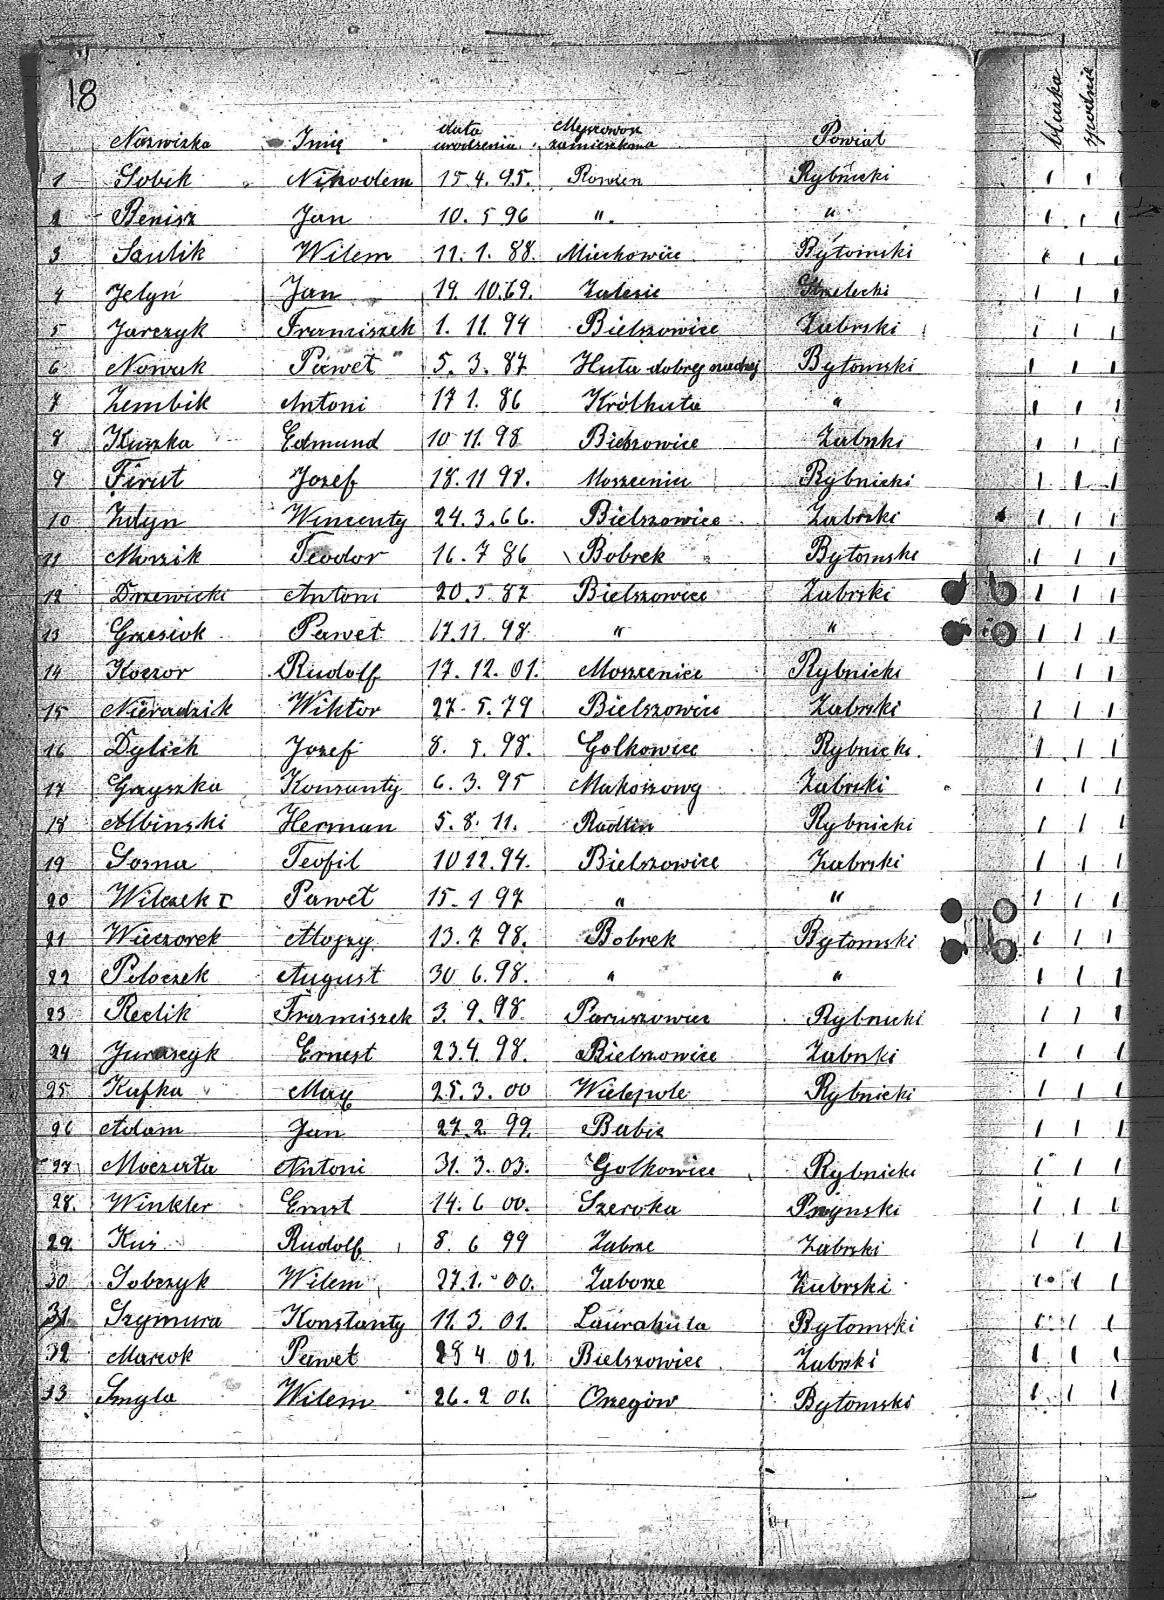 18
Nazwiska Imię data urodzenia zamieszkania Powiat bluzka spodnie
1 Sobik Nikodem 15.4.95. Rowien Rybnicki 1 1 1
2 Benisz Jan 10.5 96 ". " 1 1 1
3 Saulik Wilem 11.1.88. Miechowice Bytomski 1 1 1
4 Jelyń Jan 19.10.69. Zalesie Strzelecki 1 1 1
5 Jarczyk Franciszek 1.11.94 Bielszowice Zabrski 1 1 1
6 Nowak Paweł 5.3.87 Huta dobrej nadzej Bytomski 1 1 1
7 Zembik Antoni 17 1.86 Królhuta " 1 1 1
8 Kuszka Edmund 10 11.98 Bielszowice Zabrski 1 1 1
9 Firut Jozef 18.11 98. Moszcenice Rybnicki 1 1 1
10 Zdyn Wincenty 24.3.66. Bielszowice Zabrski 1 1 1
11 Morzik Teodor 16.7 86 Bobrek Bytomski 1 1 1
12 Drzewicki Antoni 20.5 87 Bielszowice Zabrski 1 1 1
13 Grzesiok Paweł 17.11.98. " " 1 1 1
14 Koczor Rudolf 17.12.01. Moszcenice Rybnicki 1 1 1
15 Nieradzik Wiktor 27.5.79 Bielszowice Zabrski 1 1 1
16 Dylich Jozef 8. 5.98. Golkowice Rybnicki. 1 1 1
17 Gryszka Konzanty 6.3.95 Makoszowy Zabrski 1 1 1
18 Albinski Herman 5.8.11. Radlin Rybnicki 1 1 1
19 Sosna Teofil 10 12.94. Bielszowice Zabrski 1 1 1
20 Wilczek I Paweł 15.1 97 " " 1 1 1
21 Wieczorek Alojzy 13.7 98. Bobrek Bytomski 1 1 1
22 Poloczek August 30 6.98. " " 1 1 1
23 Reclik Franciszek 3.9.98. Paruszowiec Rybnicki 1 1 1
24 Juraszyk Ernest 23.4.98. Bielszowice Zabrski 1 1 1
25 Kafka Max 25.3.00 Wielepole Rybnicki 1 1 1
26 Adam Jan 27.2.99. Babie 1 1 1
27 Moczała Antoni 31.3.03. Golkowice Rybnicki 1 1 1
28. Winkler Ernst 14.6 00. Szeroka 1 1 1
29. Kuś Rudolf 8. 6 99 Zabrze Zabrski 1 1 1
30 Sobczyk Wilem 27.1.00. Zaborze Zabrski 1 1 1
31. Szymura Konstanty 11.3.01. Laurahuta Bytomski 1 1 1
32 Marcok Paweł 4 01. Bielszowice Zabrski 1 1 1
33 Smyla Wilem 26.2 01. Orzegów Bytomski 1 1 1